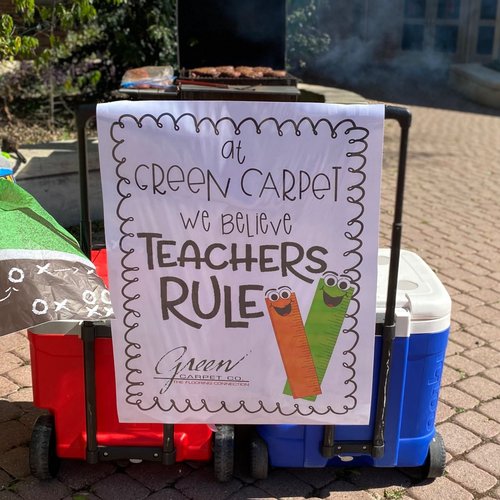 at
GREEN CARPET
WE BELIEVE
TEACHERS
RULE
Green
CARPET CO.
THE FLOORING CONNECTION